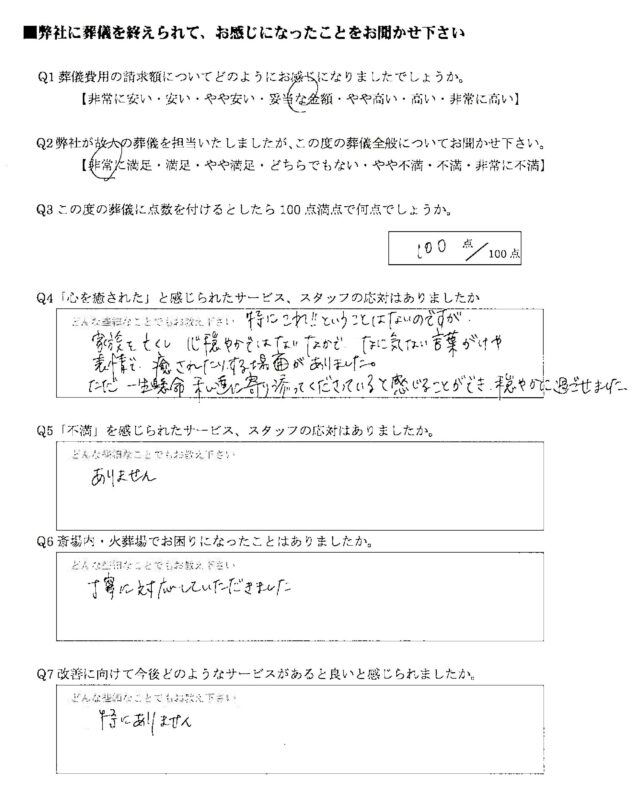 ■弊社に葬儀を終えられて、お感じになったことをお聞かせ下さい
Q1 葬儀費用の請求額についてどのようにお感じになりましたでしょうか。
【非常に安い・安い・やや安い・妥当な金額・やや高い・高い・非常に高い】
Q2 弊社が故人の葬儀を担当いたしましたが、この度の葬儀全般についてお聞かせ下さい。
【非常に満足・満足・やや満足・どちらでもない・やや不満・不満・非常に不満】
Q3 この度の葬儀に点数を付けるとしたら100点満点で何点でしょうか。
100 点／100点
Q4 「心を癒された」と感じられたサービス、スタッフの応対はありましたか
どんな些細なことでもお教え下さい 特にこれ!!ということはないのですが
家族を亡くし 心穏やかではないなかで なに気ない言葉がけや
表情で 癒されたりする場面がありました。
ただ 一生懸命 私達に寄り添ってくださっていると感じることができ 穏やかに過ごせました。
Q5 「不満」を感じられたサービス、スタッフの応対はありましたか。
どんな些細なことでもお教え下さい
ありません
Q6 斎場内・火葬場でお困りになったことはありましたか。
どんな些細なことでもお教え下さい
丁寧に対応していただきました
Q7 改善に向けて今後どのようなサービスがあると良いと感じられましたか。
どんな些細なことでもお教え下さい
特にありません